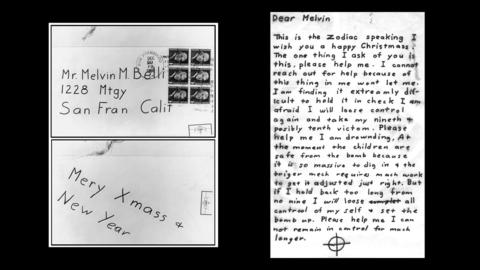 Mr. Melvin M. Belli
1228 Mtgy
San Fran Calif
Mery Xmass +
New Year
Dear Melvin
This is the Zodiac speaking I
wish you a happy Christmass.
The one thing I ask of you is
this, please help me. I cannot
reach out for help because of
this thing in me wont let me.
I am finding it extreamly dif-
icult to hold it in check I am
afraid I will loose control
again and take my nineth +
posibly tenth victom. Please
help me I am drownding. At
the moment the children are
safe from the bomb because
it is so massive to dig in + the
triger mech requires much work
to get it adjusted just right. But
if I hold back too long from
no nine I will loose all
controol of my self + set the
bomb up. Please help me I can
not remain in control for much
longer.